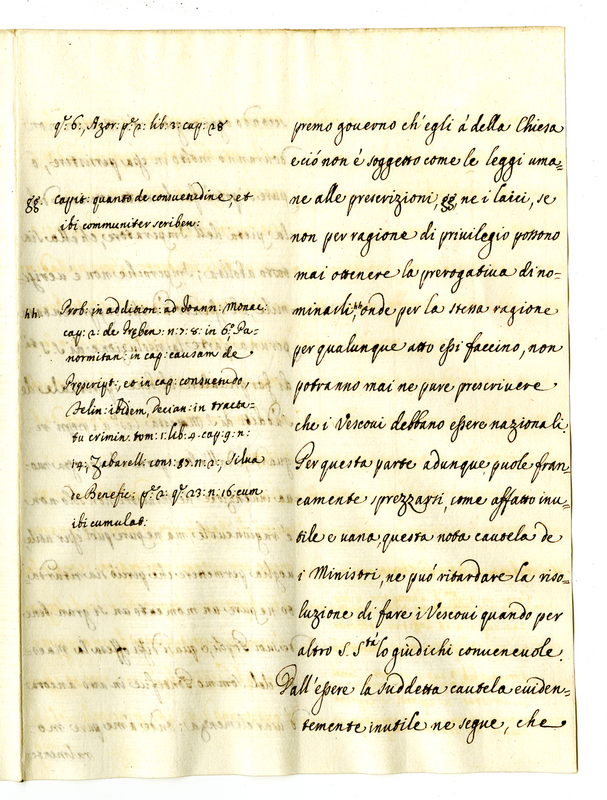 qᵉ: 6:, Azor: pᵉ: 2: lib: 3: cap: 28
gg. Capit: quanto de consuetudine, et
ibi communiter scriben:
hh. Prob: in addition: ad Joann: Monac:
cap: 2: de Præben: n: 7: 8: in 6º, Pa-
normitan: in cap: causam de
Præscript:, et in cap: consuetudo,
Felin: ibidem, Decian: in tracta-
tu crimin: tom: 1: lib: 4. cap: 9: n:
14:, Zabarell: cons: 83: n: 2:, Silua
de Benefic: pᵉ: 2: qᵉ: 23: n: 16: cum
ibi cumulat:
premo gouerno ch'egli á della Chiesa
e ció non é soggetto come le leggi uma=
ne alle prescrizioni, gg, ne i laici, se
non per ragione di priuilegio possono
mai ottenere la prerogatiua di no-
minarli, hh, onde per la stessa ragione
per qualunque atto essi faccino, non
potranno mai ne pure prescriuere
che i Vescoui debbano essere nazionali.
Per questa parte adunque puole fran=
camente sprezzarsi, come affatto inu=
tile e uana, questa nota cautela de
i Ministri, ne puó ritardare la riso=
luzione di fare i Vescoui quando per
altro S. Stà lo giudichi conueneuole.
Dall'essere la suddetta cautela euiden=
temente inutile ne segue, che